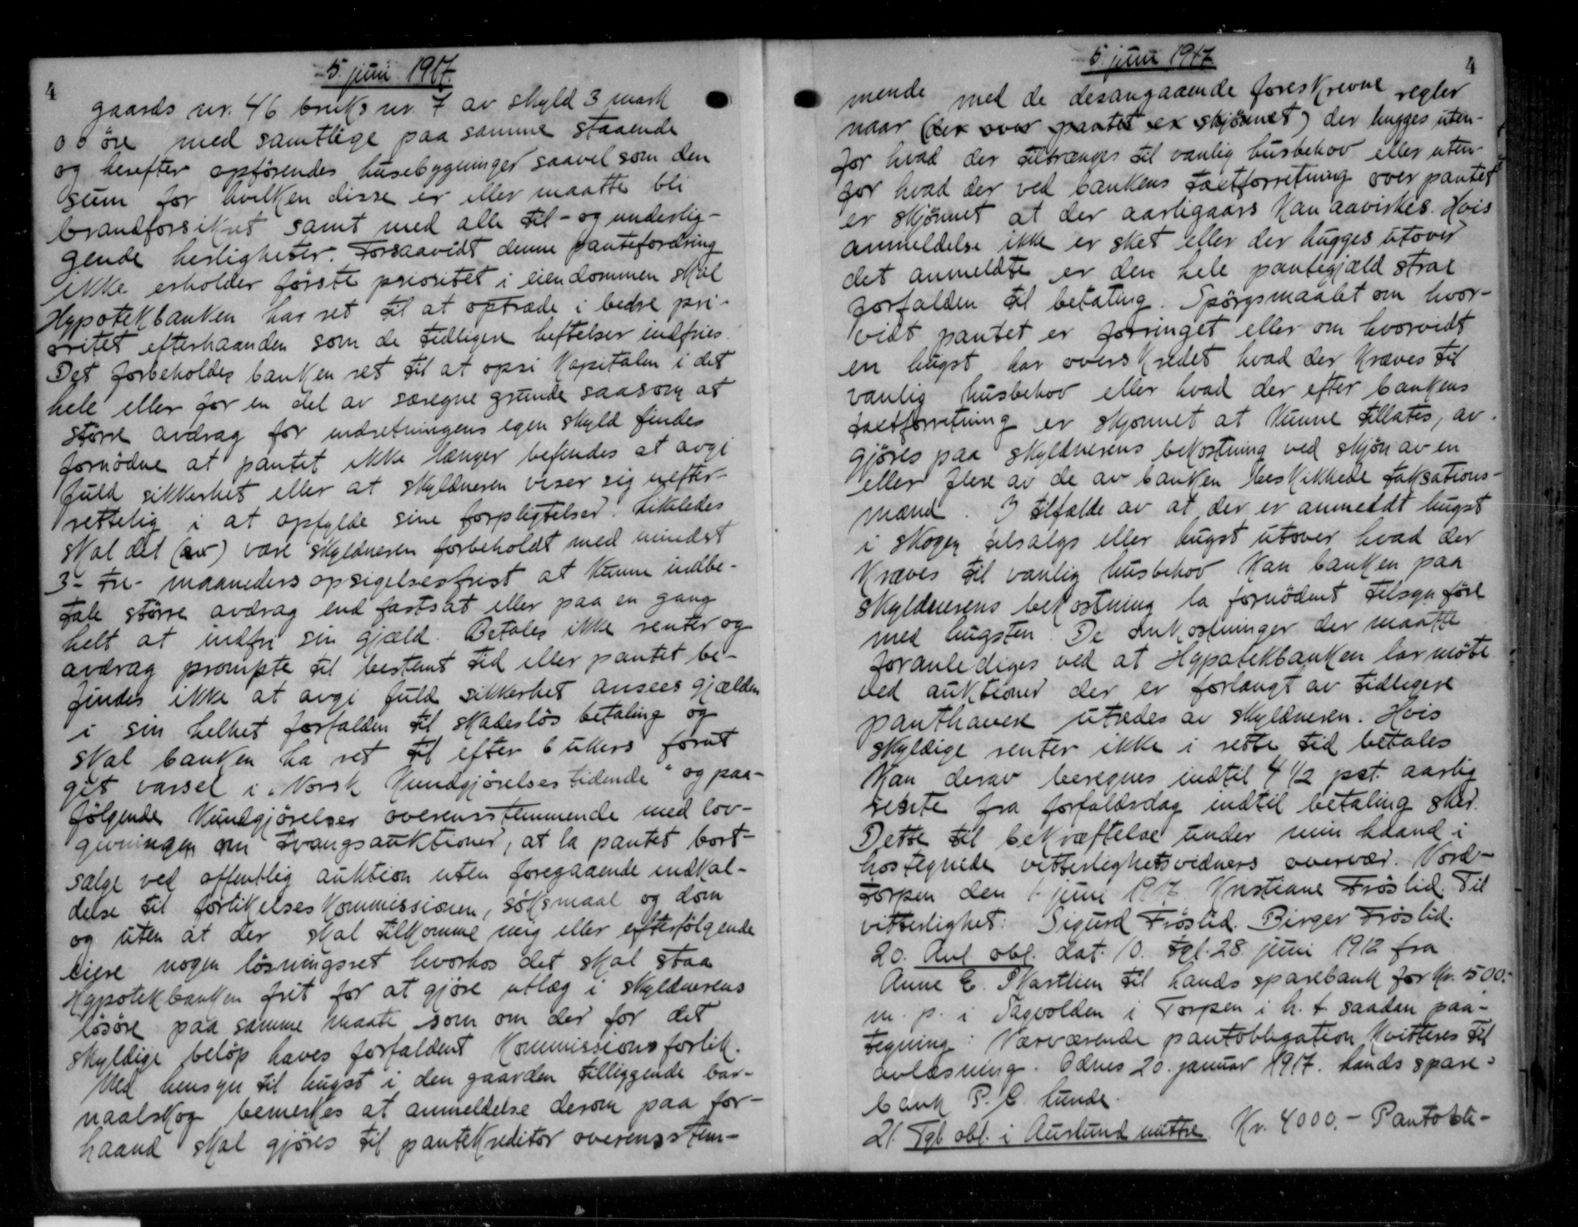 4
5 juni 1917.
gaards nr. 46 bruks nr. 7 av skyld 3 mark
00 øre med samtlige paa samme staaende
og herefter opförendes husebygninger saavel som den
sum for hvilken disse er eller maatte bli
brandforsikret samt med alle til- og underlig-
gende herligheter. Forsaavidt denne pantefordring
ikke erholder förste prioritet i eiendommen skal
Hypotekbanken har ret til at optræde i bedre pri-
oritet efterhaanden som de tidligere heftelser indfries.
Det forbeholdes banken ret til at opsi kapitalen i det
hele eller for en del av særegne grunde saasom at
større avdrag for indretningens egen skyld findes
fornödne at pantet ikke længer befindes at avgi
fuld sikkerhet eller at skyldneren viser sig uefter-
rettelig i at opfylde sine forpligtelser. Likeledes
skal det (av) være skyldneren forbeholdt med mindst
3- tre- maaneders opsigelsesfrist at kunne indbe-
tale större avdrag end fastsat eller paa en gang
helt at indfri sin gjæld. Betales ikke renter og
avdrag prompte til bestemt tid eller pantet be-
findes ikke at avgi fuld sikkerhet ansees gjælden
i sin helhet forfalden til skadeslös betaling og
skal banken ha ret til efter 6 ukers forut
git varsel i „Norsk Kundgjörelses tidende" og paa-
fölgende kundgjörelser overensstemmende med lov-
givningen om tvangsauktioner, at la pantet bort-
sælge ved offentlig auktion uten foregaaende indkal-
delse til forlikelseskommissionen, söksmaal og dom
og uten at der skal tilkomme mig eller efterfölgende
eiere nogen lösningsret hvorhos det skal staa
Hypotekbanken frit for at gjöre utlæg i skyldnerens
lösöre paa samme maate som om der for det
skyldige belöp haves forfaldent kommissionsforlik.
Med hensyn til hugst i den gaarden tilliggende bar-
naalskog bemerkes at anmeldelse derom paa for-
haand skal gjöres til pantekreditor overensstem-
4
5 juni 1917
mende med de desangaaende foreskrevne regler
naar (der over pantet er skjönnet) der hugges uten-
for hvad der tiltrænges til vanlig husbehov eller uten-
for hvad der ved bankens taxtforretning over pantet
er skjönnet at der aarligaars kan aavirkes. Hvis
anmeldelse ikke er sket eller der hugges utover
det anmeldte er den hele pantegjæld strax
forfalden til betaling. Spörgsmaalet om hvor-
vidt pantet er forringet eller om hvorvidt
en hugst har overskredet hvad der kræves til
vanlig husbehov eller hvad der efter bankens
taxtforretning er skjönnet at kunne tillates, av-
gjöres paa skyldnerens bekostning ved skjön av en
eller flere av de av banken beskikkede taksations-
mænd. I tilfælde av at der er anmeldt hugst
i skogen tilsalgs eller hugst utover hvad der
kræves til vanlig husbehov kan banken paa
skyldnerens bekostning la fornödent tilsyn före
med hugsten. De omkostninger der maatte
foranlediges ved at Hypotekbanken lar möte
ved auktioner der er forlangt av tidligere
panthavere utredes av skyldneren. Hvis
skyldige renter ikke i rette tid betales
kan derav beregnes indtil 4 1/2 pct. aarlig
rente fra forfaldsdag indtil betaling sker.
Dette til bekræftelse under min haand i
hostegnede vitterlighetsvidners overvær. Nord-
torpen den 1 juni 1917. Kristiane Fröslid. Til
vitterlighet: Sigurd Fröslid. Birger Fröslid.
20. Avl. obl. dat. 10. tgl. 28 juni 1912 fra
Anne E. Skartlien til Lands sparebank for kr. 500.-
m. p. i Tagvolden i Torpen i h. t. saadan paa-
tegning: Nærværende pantobligation kvitteres til
avlæsning. Odnes 20. januar 1917. Lands spare-
bank P. C. Lunde.
21. Tgl obl. i Aurlund mittre Kr. 4000.- Pantobli-